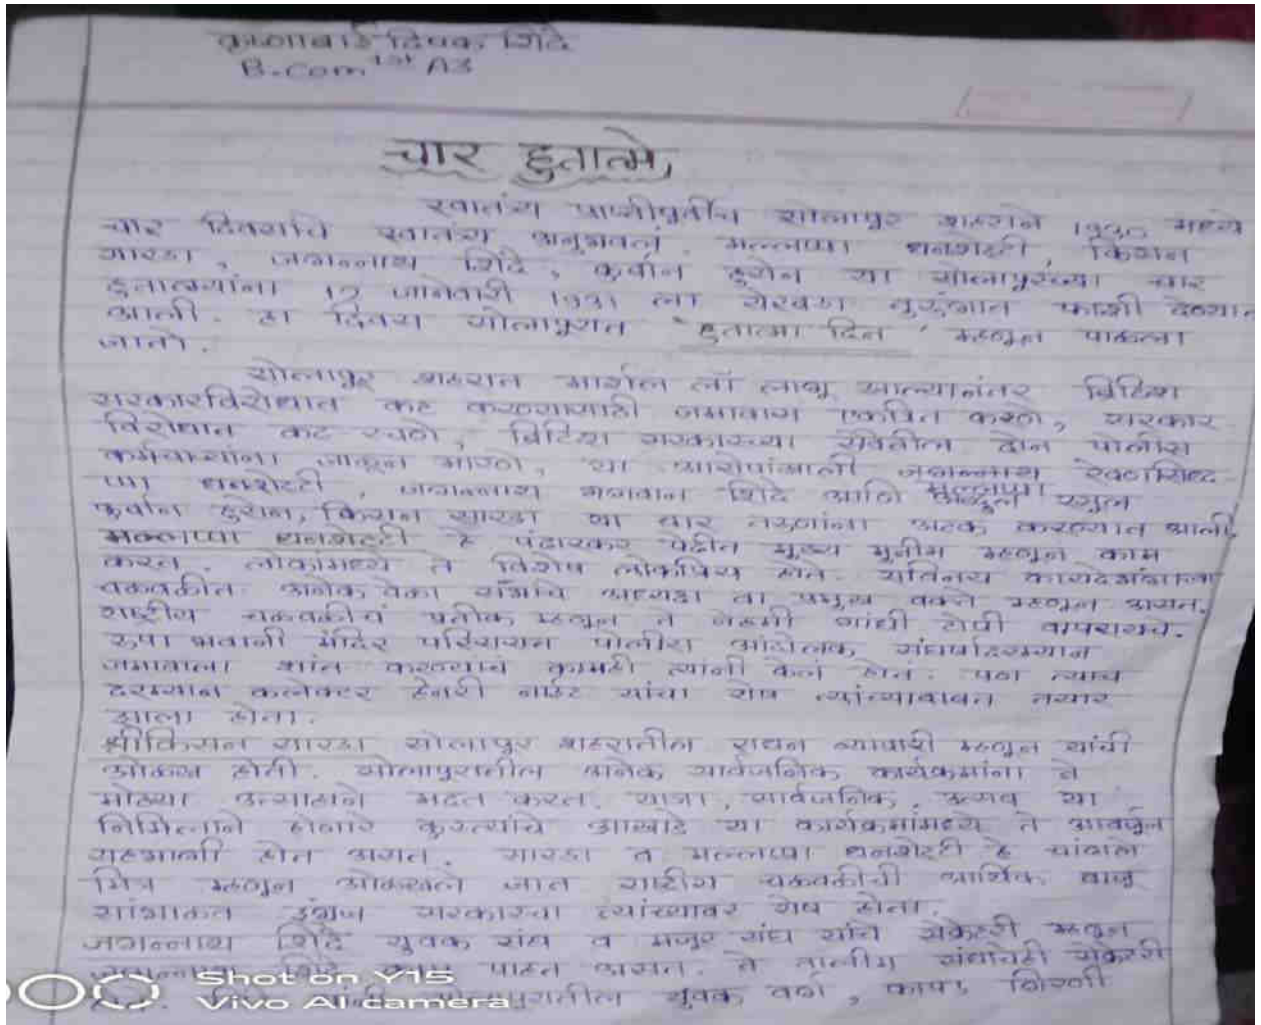 दिपक शिंदे
B.Com 1st A3
चार हुतात्मे
स्वातंत्र्य प्राप्तीपुर्वीच सोलापूर शहराने 1930 मध्ये
चार दिवसाचे स्वातंत्र्य अनुभवलं. मल्लप्पा धनशेट्टी, किसन
सारडा, जगन्नाथ शिंदे, कुर्बान हुसेन या सोलापूरच्या चार
हुतात्म्यांना 12 जानेवारी 1931 ला येरवडा तुरुंगात फाशी देण्यात
आली. हा दिवस सोलापूरात 'हुतात्मा दिन' म्हणून पाळला
जातो.
सोलापूर शहरात मार्शल लॉ लागू झाल्यानंतर ब्रिटिश
सरकारविरोधात कट करण्यासाठी जमावास एकत्रित करणे, सरकार
विरोधात कट रचणे, ब्रिटिश सरकारच्या सेवेतील दोन पोलीस
कर्मचाऱ्यांना जाळून मारणे, या आरोपांखाली जगन्नाथ
प्पा धनशेट्टी, जगन्नाथ भगवान शिंदे आणि मल्लप्पा अब्दुल रसुल
कुर्बान हुसेन, किसन सारडा या चार तरुणांना अटक करण्यात आली.
मल्लप्पा धनशेट्टी हे पंढारकर पेढीत मुख्य मुनीम म्हणून काम
करत. लोकांमध्ये ते विशेष लोकप्रिय होते. सविनय कायदेभंगाच्या
चळवळीत अनेक वेळा सभांचे अध्यक्ष वा प्रमुख वक्ते म्हणून असत.
राष्ट्रीय चळवळीचं प्रतीक म्हणून ते नेहमी गांधी टोपी वापरायचे.
रुपा भवानी मंदिर परिसरात पोलीस आंदोलक संघर्षादरम्यान
जमावाला शांत करण्याचं कामही त्यांनी केलं होतं. पण त्याच
दरम्यान कलेक्टर हेनरी नाईट यांचा रोष त्यांच्याबाबत तयार
झाला होता.
श्रीकिसन सारडा सोलापूर शहरातील सधन व्यापारी म्हणून यांची
ओळख होती. सोलापुरातील अनेक सार्वजनिक कार्यक्रमांना ते
मोठ्या उत्साहाने मदत करत. यात्रा, सार्वजनिक, उत्सव या
निमित्ताने होणारे कुस्त्यांचे आखाडे या कार्यक्रमांमध्ये ते आवर्जुन
सहभागी होत असत. सारडा व मल्लप्पा धनशेट्टी हे चांगले
मित्र म्हणून ओळखले जात राष्ट्रीय चळवळीची आर्थिक बाजू
सांभाळत इंग्रज सरकारचा त्यांच्यावर रोष होता.
जगन्नाथ शिंदे युवक संघ व मजूर संघ यांचे सेक्रेटरी म्हणून
जगन्नाथ शिंदे काम पाहत असत. ते तालीम संघाचेही सेक्रेटरी
सोलापुरातील युवक वर्ग, कापड गिरणी
Shot on Y15
Vivo AI camera